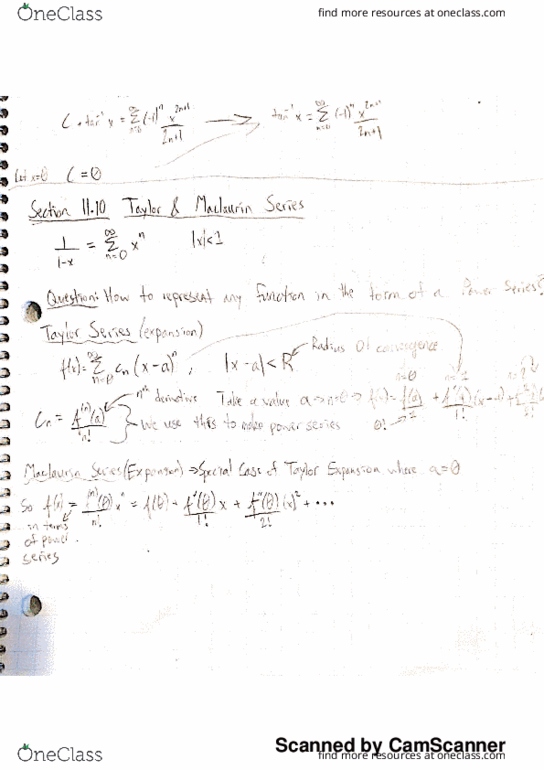 OneClass find more resources at oneclass.com
C + tan⁻¹x = Σ_{n=0}^{∞} (-1)^n x^{2n+1}/(2n+1) → tan⁻¹x = Σ_{n=0}^{∞} (-1)^n x^{2n+1}/(2n+1)
Let x=0 C=0
Section 11.10 Taylor & Maclaurin Series
1/(1-x) = Σ_{n=0}^{∞} x^n |x|<1
Question: How to represent any function in the form of a Power Series?
Taylor Series (expansion)
Radius of convergence
f(x) = Σ_{n=0}^{∞} c_n (x-a)^n, |x-a| < R
n=0 n=1 n=2
nth derivative Take a value a → n=0 → f(x) = f(a)/1 + f'(a)/1! (x-a) +
C_n = f^{(n)}(a)/n! } We use this to make power series 0!
Maclaurin Series (Expansion) → Special Case of Taylor Expansion where a=0
So f(x) = f^{(n)}(0)/n! x^n = f(0) + f'(0)/1! x + f''(0)/2! (x)^2 + ...
in terms
of power
series
Scanned by CamScanner
OneClass find more resources at oneclass.com